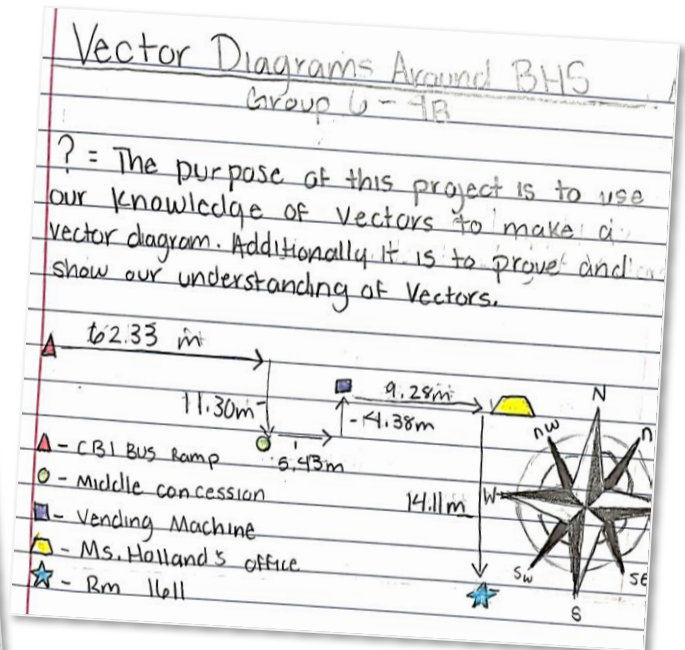 Vector Diagrams Around BHS
Group 6 - 4B
? = The purpose of this project is to use
our knowledge of vectors to make a
vector diagram. Additionally it is to prove and
show our understanding of vectors.
62.33 m
11.30m
5.43m
4.38m
9.28m
14.11m
CBI BUS Ramp
Middle concession
Vending Machine
Ms. Holland's office
Rm 1611
N
nw
n
W
Sw
SE
S